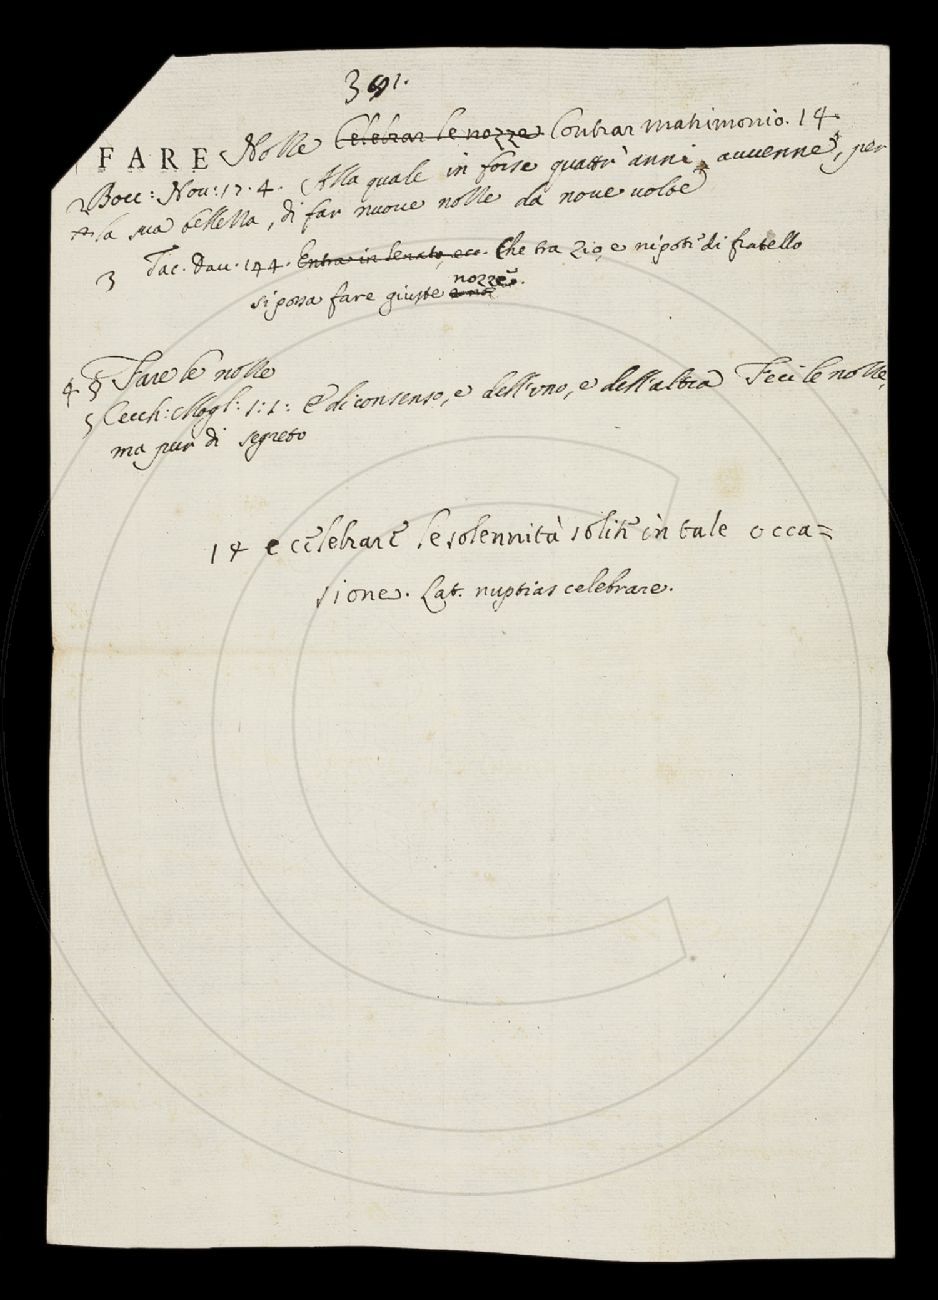 391.
FARE Nozze Celebrar le nozze Contrar matrimonio. 14.
2 Bocc: Nov: 17. 4. Alla quale in forse quattr' anni avvenne, per
la sua bellezza, di far nuove nozze da nove volte
3 Tac. Dav. 144. Entra in Senato, ecc. Che tra zio, e nipoti di fratello
si possa fare giuste nozze.
4 § Fare le nozze
5 Cecch: Mogl: 1: 1: E di consenso, e dell'uno, e dell'altra Feci le nozze,
ma pur di segreto
14 e celebrare le solennità solite in tale occa=
sione. Lat. nuptias celebrare.